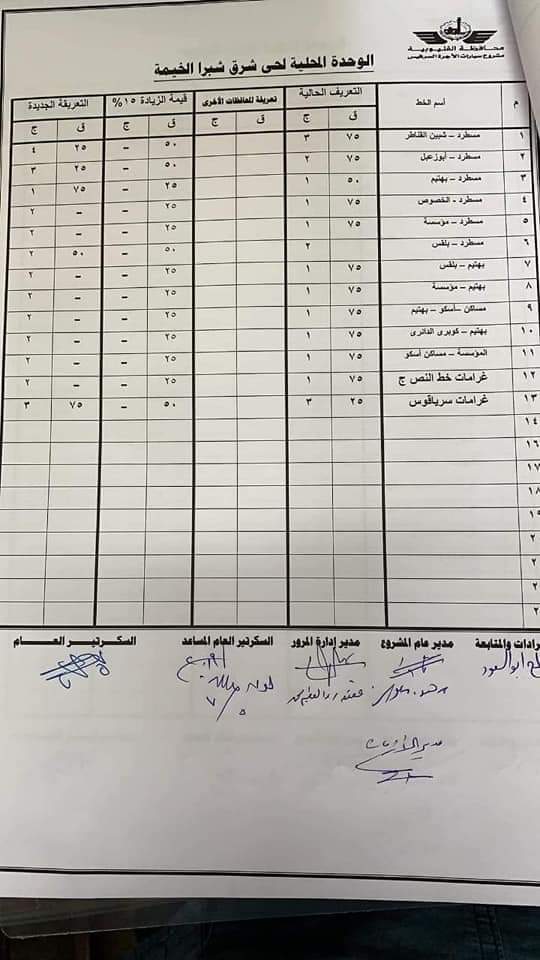 محافظة القليوبية
مشروع سيارات الأجرة السرفيس
الوحدة المحلية لحى شرق شبرا الخيمة
م | أسم الخط | التعريف الحالية | تعريفة للمحافظات الأخرى | قيمة الزيادة ١٥% | التعريفة الجديدة
ق | ج | ق | ج | ق | ج | ق | ج
١ | مسطرد – شبين القناطر | ٧٥ | ٣ | ٥٠ | – | ٢٥ | ٤
٢ | مسطرد – أبوزعبل | ٧٥ | ٢ | ٥٠ | – | ٢٥ | ٣
٣ | مسطرد – بهتيم | ٥٠ | ١ | ٢٥ | – | ٧٥ | ١
٤ | مسطرد - الخصوص | ٧٥ | ١ | ٢٥ | – | – | ٢
٥ | مسطرد – مؤسسة | ٧٥ | ١ | ٢٥ | – | – | ٢
٦ | مسطرد – بلقس | ٢ | ٥٠ | – | ٥٠ | ٢
٧ | بهتيم – بلقس | ٧٥ | ١ | ٢٥ | – | – | ٢
٨ | بهتيم – مؤسسة | ٧٥ | ١ | ٢٥ | – | – | ٢
٩ | مساكن –أسكو – بهتيم | ٧٥ | ١ | ٢٥ | – | – | ٢
١٠ | بهتيم – كوبرى الدائرى | ٧٥ | ١ | ٢٥ | – | – | ٢
١١ | المؤسسة – مساكن أسكو | ٧٥ | ١ | ٢٥ | – | – | ٢
١٢ | غرامات خط النص ج | ٧٥ | ١ | ٢٥ | – | – | ٢
١٣ | غرامات سرياقوس | ٢٥ | ٣ | ٥٠ | – | ٧٥ | ٣
١٤
١٦
١٧
١٨
١٥
٢
٢
٢
٢
رادات والمتابعة | مدير عام المشروع | مدير إدارة المرور | السكرتير العام المساعد | السكرتير العام
ابو السعود